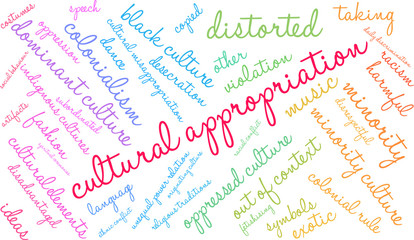 costumes
speech
copied
distorted
taking
oppression
dominant culture
colonialism
black culture
dance
cultural misappropriation
desecration
other
violation
racism
harmful
indigenous cultures
subordinated
artifacts
fashion
cultural appropriation
music
disrespectful
minority
minority culture
cultural elements
disadvantaged
language
ethnic conflict
unequal power relation
religious traditions
oppressed culture
out of context
fetishizing
symbols
exotic
colonial rule
ideas